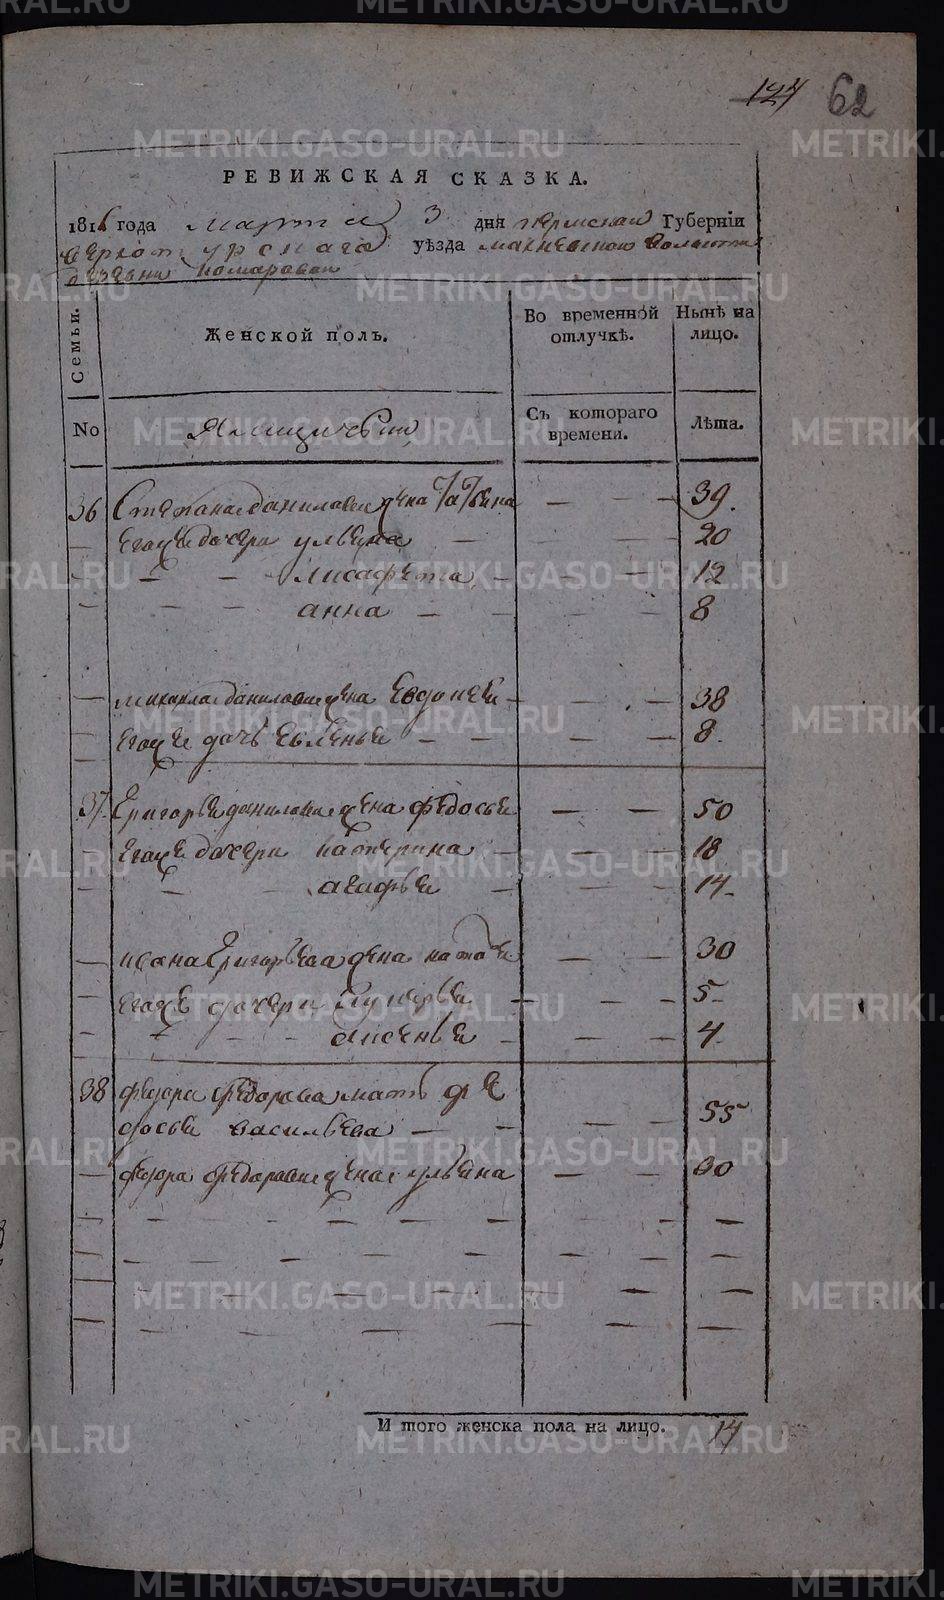 127 62
РЕВИЖСКАЯ СКАЗКА.
1816 года марта 3 дня пермской Губерніи
верхотурскаго уѣзда махневской волости
деревни комаровой
Семьи. Женской полъ. Во временной отлучкѣ. Нынѣ на лицо.
No Ямщичьъи Съ котораго времени. Лѣта.
36 Степана данилова жена 39.
егоже дочери ульяна — — — 20
— — — лисафета — — — 12
— — — анна — — — — 8
— михаила данилова жена Евдокея — — — 38
— егоже дочь — — — — 8.
37. Григорья данилова жена федосья — — 50
— егоже дочери катерина — — — 18
— — — агафья — — — 14
— ивана Григорьева жена — — 30
— егоже дочери — — — 5
— — — — аксенья — — — 4
38 федора федорова мать фе
досья васильева — — — — 55
— федора федорова жена ульяна — — 30
И того женска пола на лицо. 14
METRIKI.GASO-URAL.RU